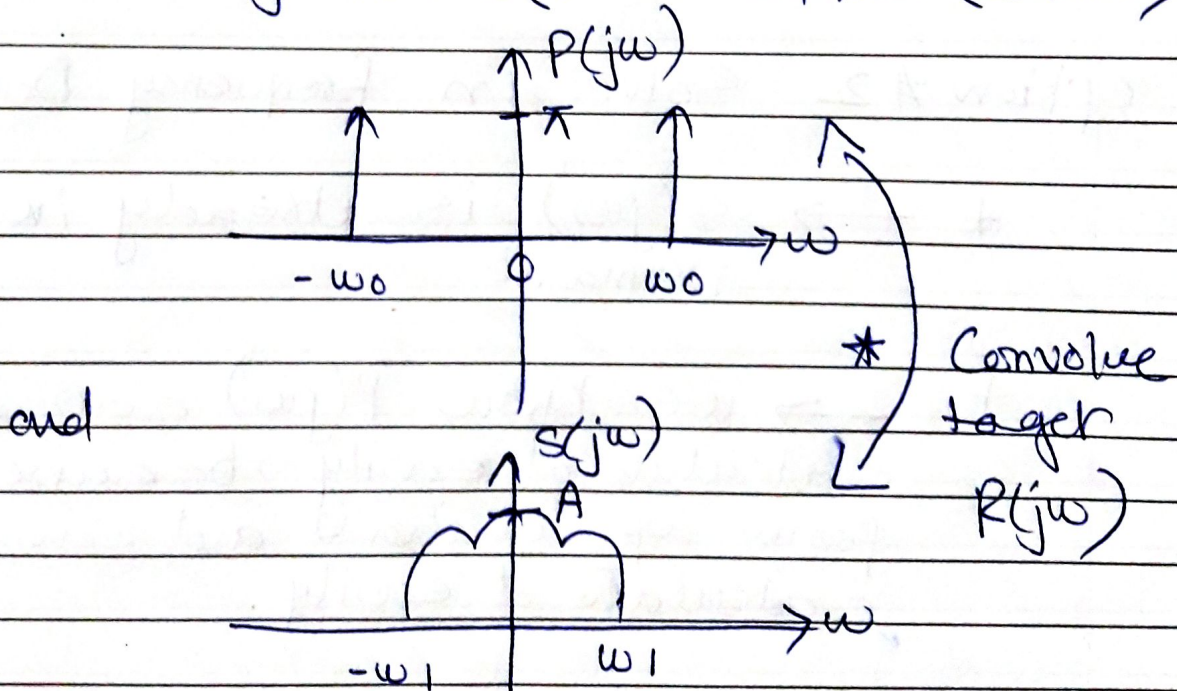 P(jω)
π
ω
-ω0
0
ω0
* Convolve
to get
R(jω)
and
S(jω)
A
ω
-ω1
ω1